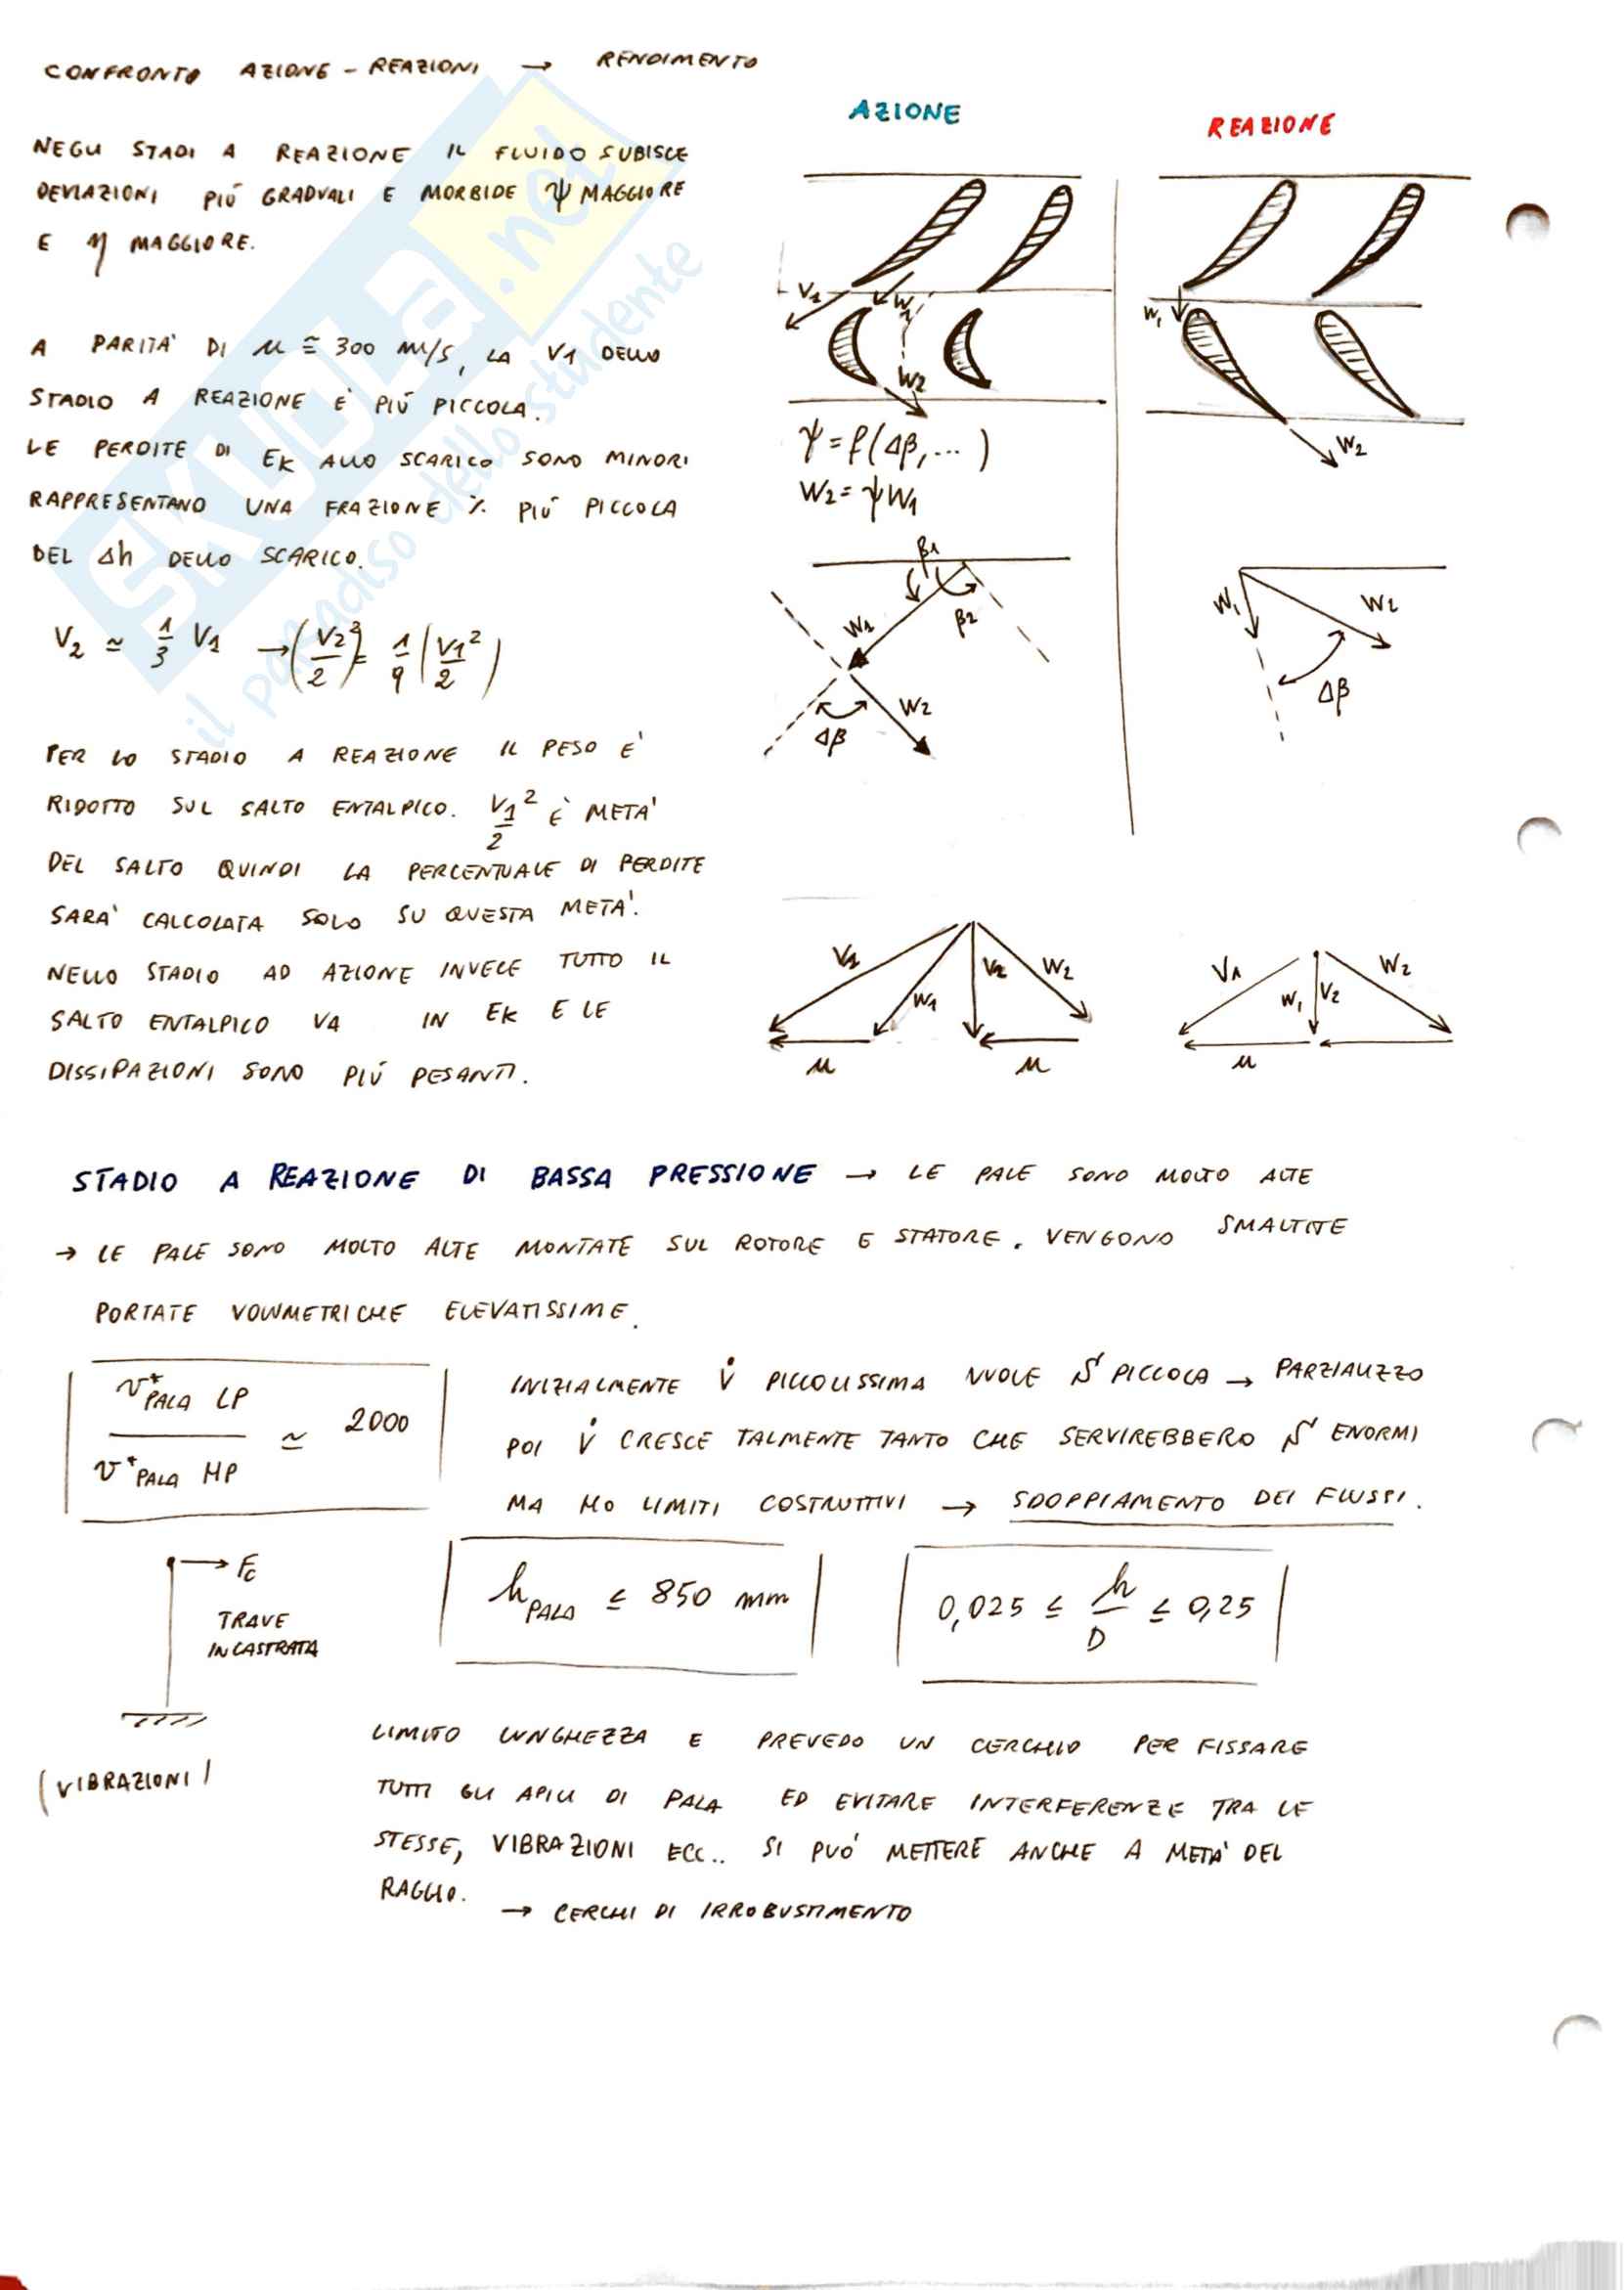 CONFRONTO AZIONE - REAZIONI → RENDIMENTO
NEGLI STADI A REAZIONE IL FLUIDO SUBISCE
DEVIAZIONI PIÚ GRADUALI E MORBIDE ψ MAGGIORE
E η MAGGIORE.
A PARITA' DI u ≅ 300 m/s, LA V1 DELLO
STADIO A REAZIONE È PIÚ PICCOLA.
LE PERDITE DI EK ALLO SCARICO SONO MINORI
RAPPRESENTANO UNA FRAZIONE % PIÚ PICCOLA
DEL Δh DELLO SCARICO.
V2 ≃ 1/3 V1 → (V2²/2) = 1/9 (V1²/2)
PER LO STADIO A REAZIONE IL PESO E'
RIDOTTO SUL SALTO ENTALPICO. V1²/2 È META'
DEL SALTO QUINDI LA PERCENTUALE DI PERDITE
SARA' CALCOLATA SOLO SU QUESTA META'.
NELLO STADIO AD AZIONE INVECE TUTTO IL
SALTO ENTALPICO VA IN EK E LE
DISSIPAZIONI SONO PIÚ PESANTI.
AZIONE
REAZIONE
V1 W1
W2
W1
W2
ψ = f(Δβ, ...)
W2 = ψW1
β1
β2
W1
W2
Δβ
W1 W2
Δβ
V1 W1 V2 W2
u u
V1 W1 V2 W2
u
STADIO A REAZIONE DI BASSA PRESSIONE → LE PALE SONO MOLTO ALTE
→ LE PALE SONO MOLTO ALTE MONTATE SUL ROTORE E STATORE. VENGONO SMALTITE
PORTATE VOLUMETRICHE ELEVATISSIME.
v*PALA LP / v*PALA HP ≃ 2000
INIZIALMENTE V̇ PICCOLISSIMA VUOLE S PICCOLA → PARZIALIZZO
POI V̇ CRESCE TALMENTE TANTO CHE SERVIREBBERO S ENORMI
MA HO LIMITI COSTRUTTIVI → SDOPPIAMENTO DEI FLUSSI.
Fc
TRAVE
INCASTRATA
(VIBRAZIONI)
hPALA ≤ 850 mm
0,025 ≤ h/D ≤ 0,25
LIMITO LUNGHEZZA E PREVEDO UN CERCHIO PER FISSARE
TUTTI GLI APICI DI PALA ED EVITARE INTERFERENZE TRA LE
STESSE, VIBRAZIONI ECC.. SI PUÓ METTERE ANCHE A META' DEL
RAGGIO.
→ CERCHI DI IRROBUSTIMENTO
SKUOLA.net
il paradiso dello studente